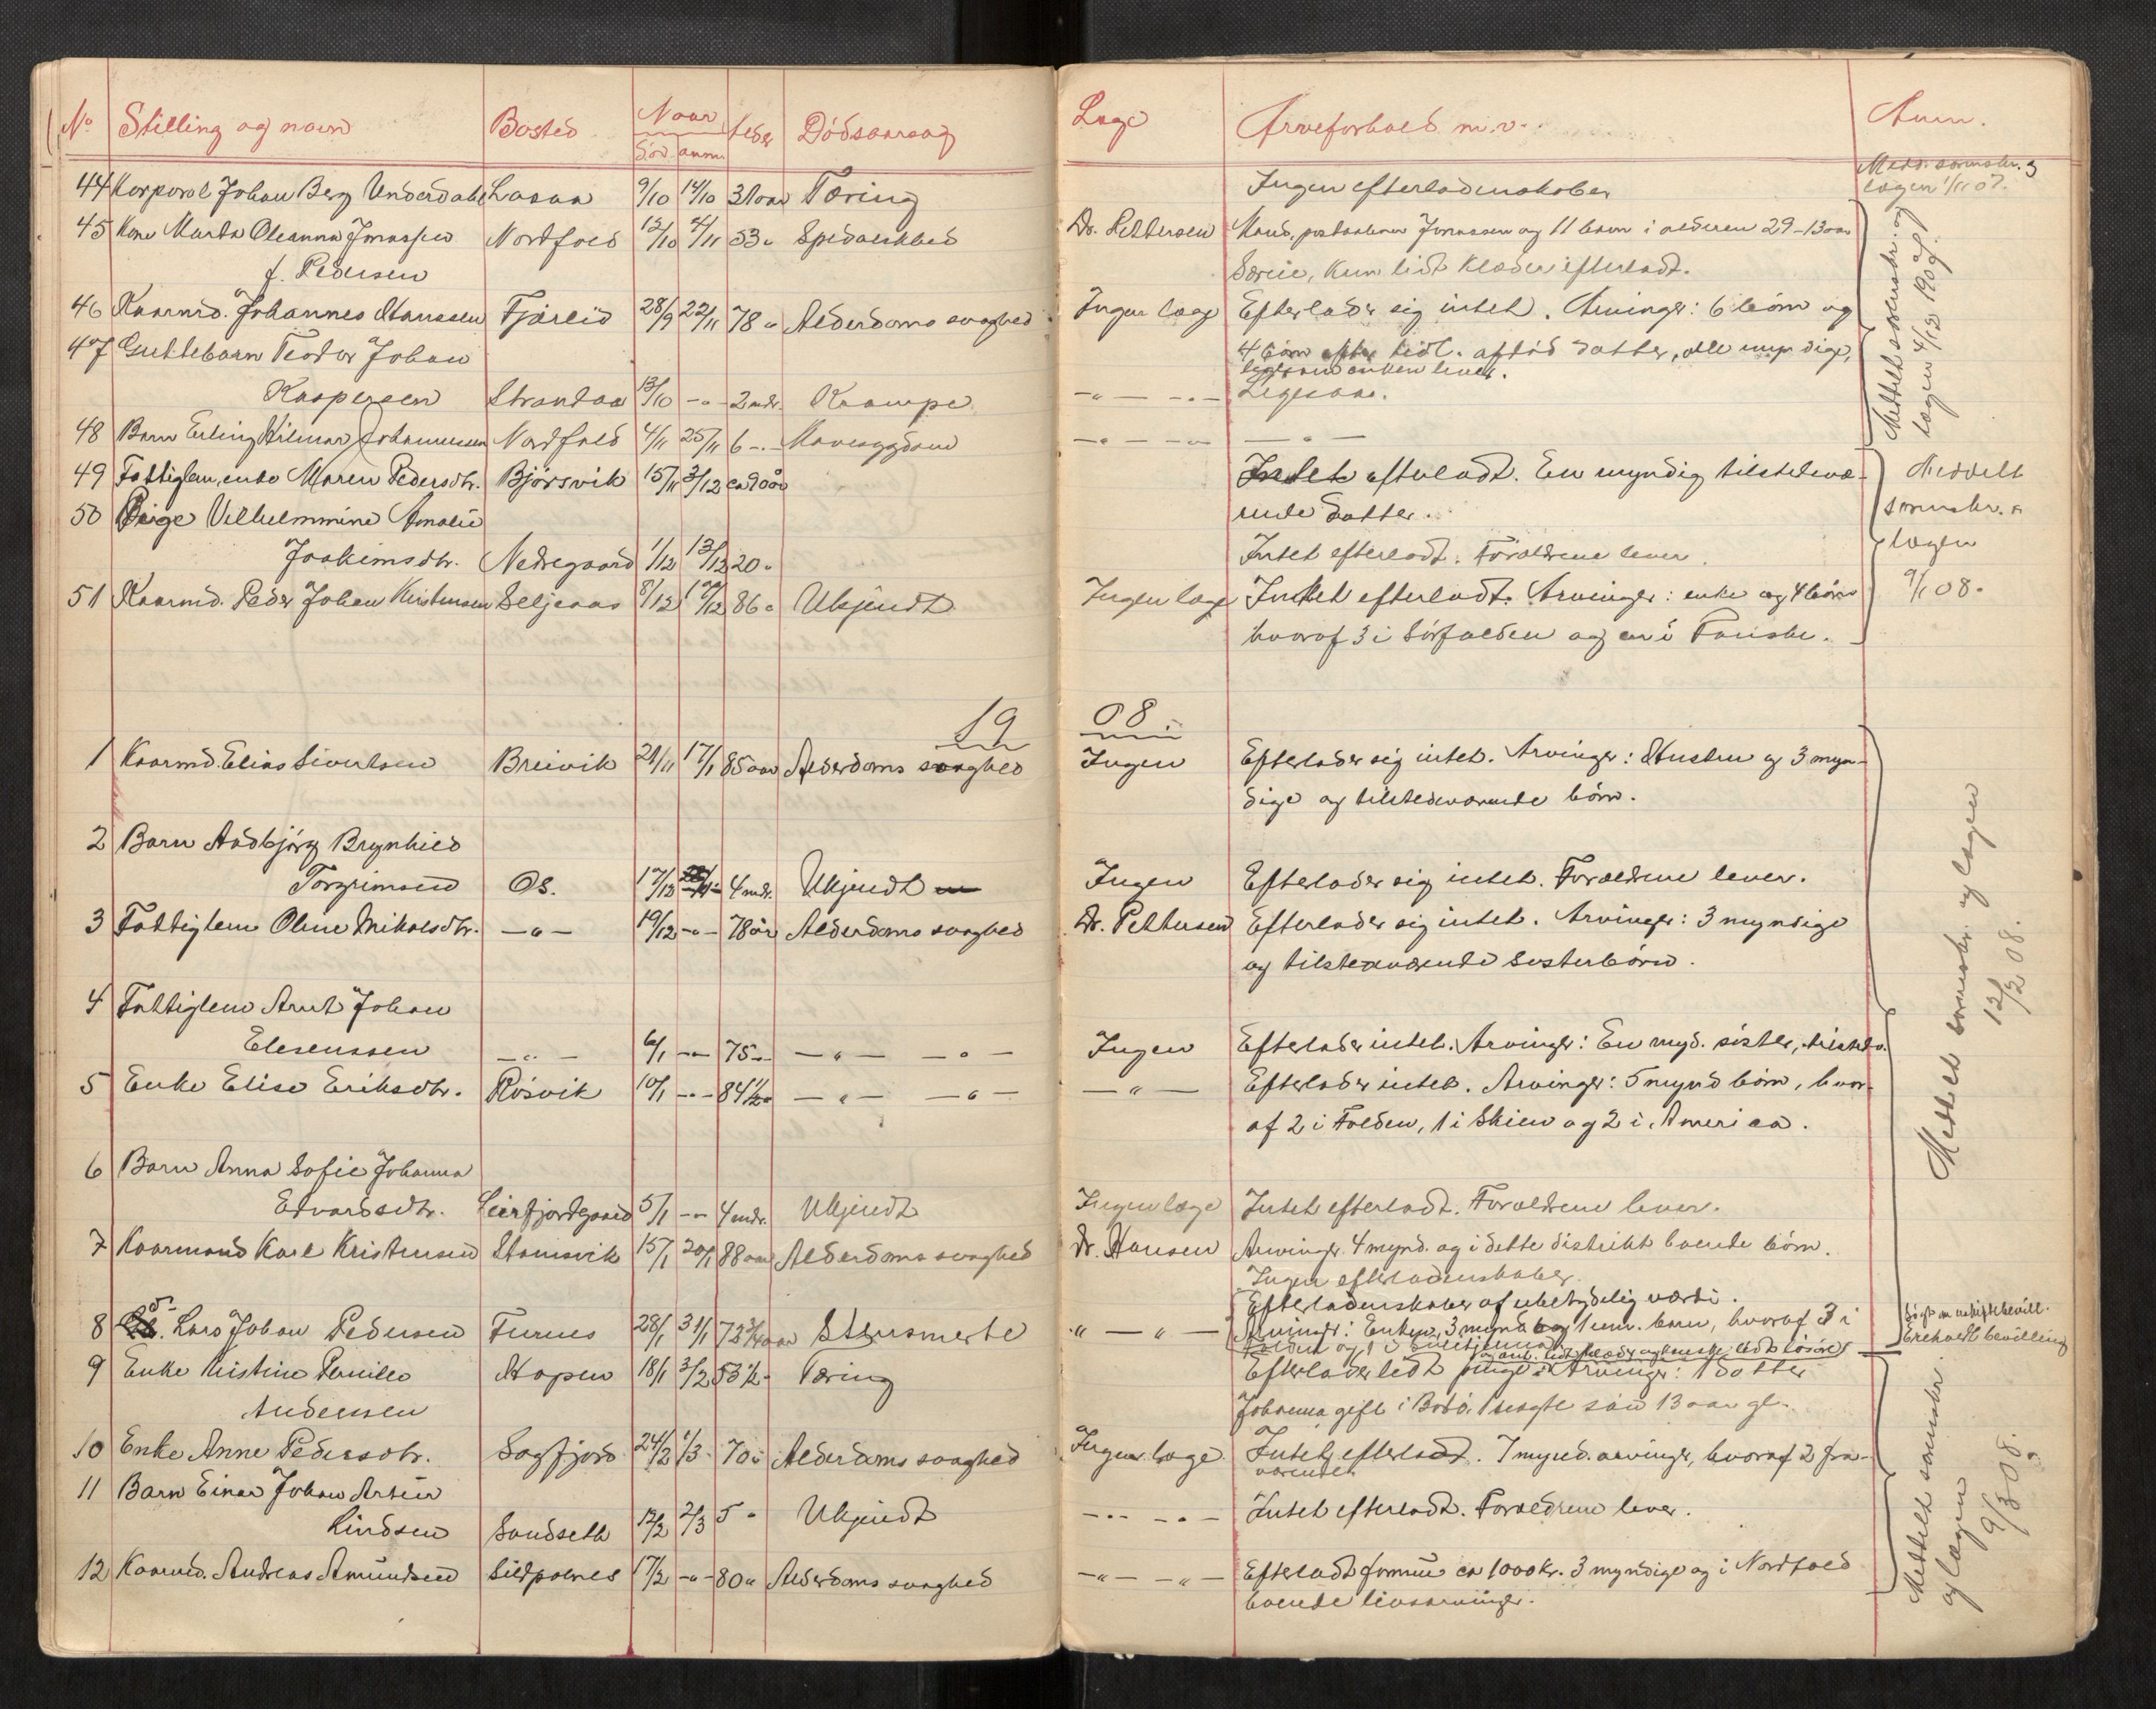 No Stilling og navn Bosted Naar Död anm. Alder Dödsaarsag Læge Arveforhold m.v. Anm.
44 Korporal Johan Berg Underdahl Laxaa 9/10 14/10 31 aar Tæring Ingen efterladenskaber Medd. sorenskr. og
lægen 1/11 07.
45 Kone Marta Oleanna Jonassen Nordfold 12/10 4/11 53 " Spedalskhed Dr. Pettersen Mand, postaabner Jonassen og 11 barn i alderen 29-13 aar
f. Pedersen Særeie, kun lidt klæder efterladt.
46 Kaarmd. Johannes Hanssen Fjæreid 28/9 22/11 78 " Alderdoms svaghed Ingen læge Efterlader sig intet. Arvinger: 6 börn og
47 Guttebarn Teodor Johan 4 börn efter tidl. afdöd datter, alle myndige,
ligesom enken lever.
Kaspersen Strandaa 13/10 - " - 2 mdr. Krampe - " - - " - Ligesaa.
48 Barn Erling Hilmar Johannessen Nordfold 4/11 25/11 6 - " - Mavesygdom - " - - " - - " -
Meddelt sorenskr. og
lægen 4/12 1907.
49 Fattiglem, enke Maren Pedersdtr. Björsvik 15/11 3/12 ca 90 år Intet efterladt. En myndig tilstedevæ-
rende datter.
50 Pige Vilhelmmine Amalie
Joakimsdtr. Nedregaard 1/12 13/12 20 " Intet efterladt. Forældrene lever.
51 Kaarmd. Peder Johan Kristensen Seljeaas 8/12 19/12 86 " Ukjendt Ingen læge Intet efterladt. Arvinger: enke og 4 börn
hvoraf 3 i Sörfolden og en i Fauske.
Meddelt
sorenskr. og
lægen
9/1 08.
19 08.
1 Kaarmd Elias Sivertsen Breivik 21/11 17/1 85 aar Alderdoms svaghed Ingen Efterlader sig intet. Arvinger: Hustru og 3 myn-
dige og tilstedeværende börn.
2 Barn Aadbjörg Brynhild
Torgrimsen Os. 17/12 4 mdr. Ukjendt Ingen Efterlader sig intet. Forældrene lever.
3 Fattiglem Oline Mikalsdtr. - " - 19/12 - " - 78 år Alderdoms svaghed Dr. Pettersen Efterlader sig intet. Arvinger: 3 myndige
og tilstedeværende søsterbörn.
4 Fattiglem Arnt Johan
Elesenssen - " - 6/1 - " - 75 - " - - " - - " - Ingen Efterlader intet. Arvinger: En myd. sister, tilstedev.
5 Enke Elise Eriksdtr. Rösvik 10/1 - " - 84 1/2 " - " - - " - - " - Efterlader intet. Arvinger: 5 mynd börn, hvor-
af 2 i Folden, 1 i Skien og 2 i America.
6 Barn Anna Sofie Johanna
Edvardsdtr. Leirfjordgaard 5/1 - " - 4 mdr. Ukjendt Ingen læge Intet efterladt. Forældrene lever.
7 Kaarmand Karl Kristensen Stamsvik 15/1 20/1 88 aar Alderdoms svaghed Dr. Hansen Arvinger. 4 mynd. og i dette distrikt boende börn.
Ingen efterladenskaber.
Meddelt sorenskr. og lægen
12/2 08.
Efterladenskaber af ubetydelig værdi.
8 Lars Johan Pedersen Furnes 28/1 31/1 72 3/4 aar " - " - Arvinger: Enken, 3 mynd og 1 um. barn, hvoraf 3 i
Folden og 1 i Sulitjelma
Sögt om uskiftebevill.
Erholdt bevilling
og ant. lidt klæder og kanske lidt lösöre
9 Enke Kristine Pernille Hopen 18/1 3/2 53 1/2 " Tæring Efterlader lidt penge Arvinger: 1 datter
Andersen Johanna gift i Bodö, 1 uægte sön 13 aar gl.
10 Enke Anne Pedersdtr. Sagfjord 24/2 1/3 70 " Alderdoms svaghed Ingen læge Intet efterladt. 7 mynd. arvinger, hvoraf 2 fra-
værende.
11 Barn Einar Johan Artur
Lindsen Sandseth 12/2 2/3 5 " Ukjendt - " - - " - Intet efterladt. Forældrene lever.
12 Kaarmd. Andreas Amundsen Sildpolnes 17/2 - " - 80 " Alderdoms svaghed - " - - " - Efterladt formue ca 1000 kr. 3 myndige og i Nordfold
boende livsarvinger.
Meddelt sorenskr.
og lægen 9/3 08.